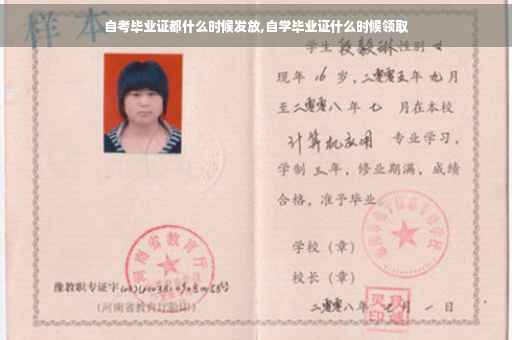 自考毕业证都什么时候发放,自学毕业证什么时候领取
样本
学生 段毅琳 性别 女
现年 16 岁,二零零五年 九月
至二零零八年 七 月在本校
计算机应用 专业学习,
学制 三年,修业期满,成绩
合格,准予毕业
学校(章)
校长(章)
二零零八年 七月 一日
河南省教育厅
豫教职专证字
(河南省教育厅验印)